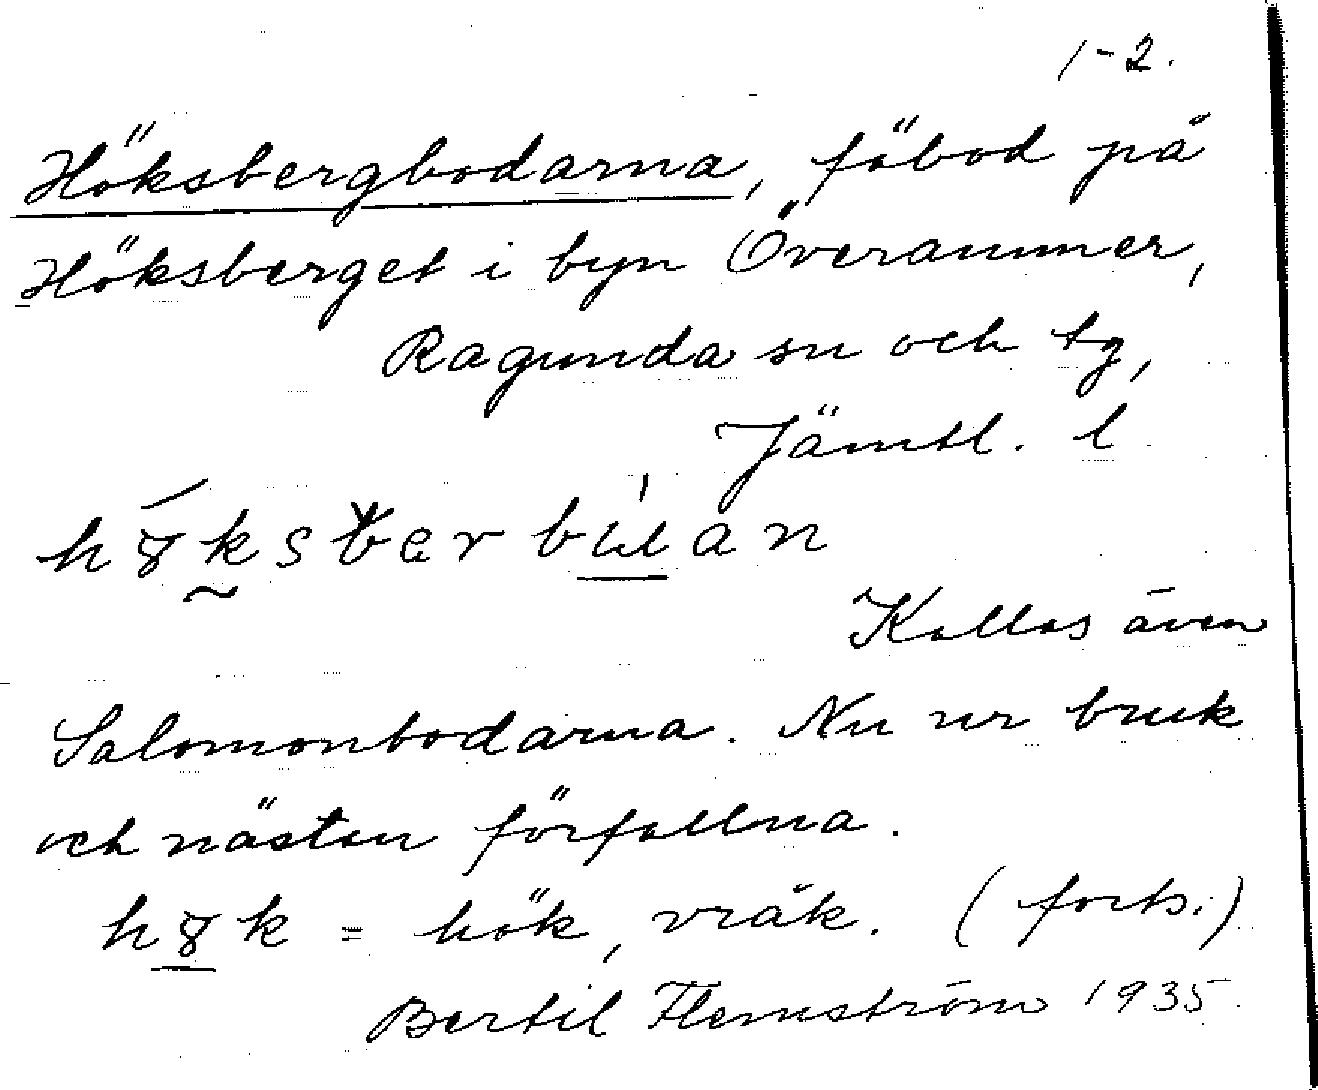 1-2.
Höksbergbodarna, föbod på
Höksberget i byn Överammer,
Ragunda sn och tg,
Jämtl. l
Kallas även
Salomonbodarna. Nu ur bruk
och nästan förfallna.
= hök, vråk. (forts.)
Bertil Flemström 1935.